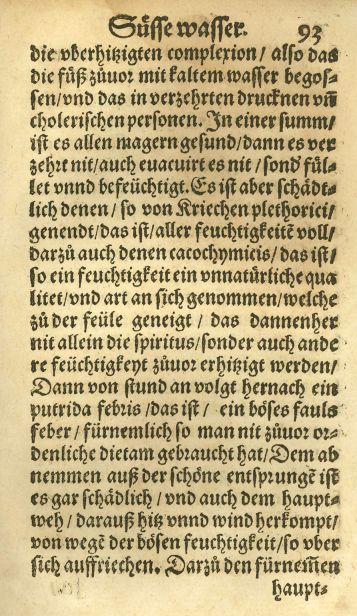 Süsse wasser. 93
die vberhitzigten complexion/ also das
die füß zůuor mit kaltem wasser begos-
sen/vnd das in verzehrten drucknen vñ
cholerischen personen. In einer summ/
ist es allen magern gesund/dann es ver
zehrt nit/auch euacuirt es nit/ sond' fül-
let vnnd befeüchtigt. Es ist aber schådt-
lich denen/ so von Kriechen plethorici/
genendt/das ist/aller feuchtigkeitẽ voll/
darzů auch denen cacochymicis/das ist/
so ein feuchtigkeit ein vnnatürliche qua
litet/vnd art an sich genommen/welche
zů der feüle geneigt / das dannenher
nit allein die spiritus/sonder auch ande
re feüchtigkeyt zůuor erhitzigt werden/
Dann von stund an volgt hernach ein
putrida febris/das ist/ ein böses fauls
feber/ fürnemlich so man nit zůuor or-
denliche dietam gebraucht hat/Dem ab
nemmen auß der schöne entsprungẽ ist
es gar schådlich/ vnd auch dem haupt-
weh/ darauß hitz vnnd wind herkompt/
von wegẽ der bösen feuchtigkeit/so vber
sich auffriechen. Darzů den fürnem̃en
haupt-